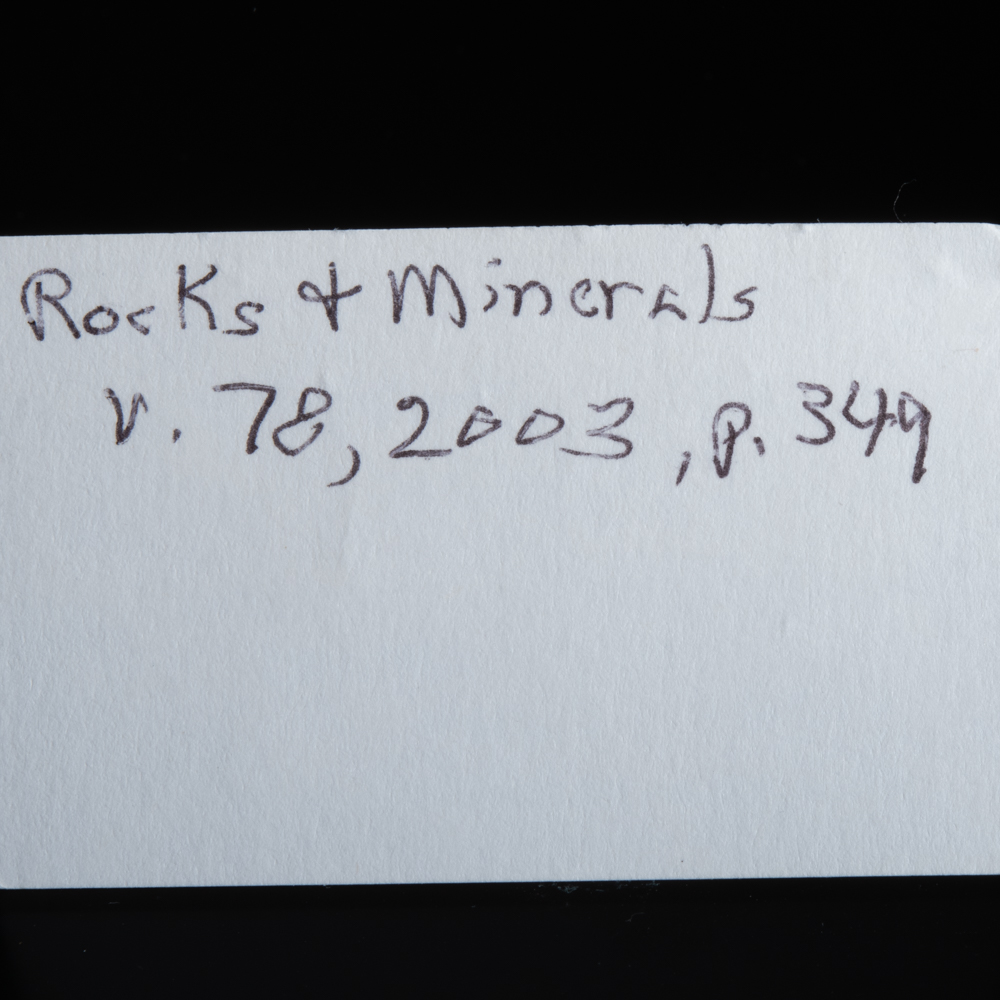 Rocks & Minerals
v. 78, 2003, p. 349